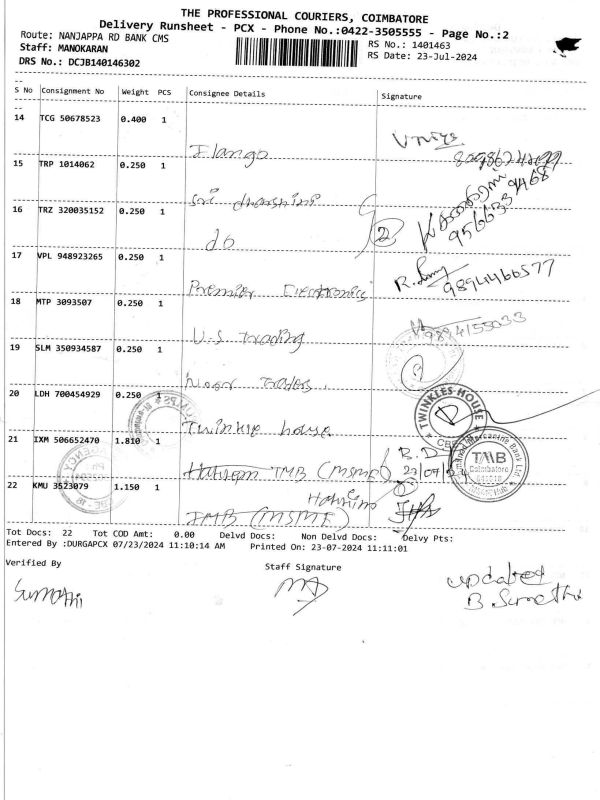 THE PROFESSIONAL COURIERS, COIMBATORE
Delivery Runsheet - PCX - Phone No.:0422-3505555 - Page No.:2
Route: NANJAPPA RD BANK CMS
RS No.: 1401463
Staff: MANOKARAN
RS Date: 23-Jul-2024
DRS No.: DCJB140146302
S No Consignment No Weight PCS Consignee Details Signature
14 TCG 50678523 0.400 1
Ilango
15 TRP 1014062 0.250 1
Sri dharshini
16 TRZ 320035152 0.250 1
do
2
17 VPL 948923265 0.250 1
Premier Electronics
9894466577
18 MTP 3093507 0.250 1
U.S Trading
9894155033
19 SLM 350934587 0.250 1
Noor Traders.
20 LDH 700454929 0.250 1
Twinkle house
TWINKLES HOUSE
CBE
21 IXM 506652470 1.810 1
TMB (MSME)
Mercantile Bank Ltd
TMB
Coimbatore
22 KMU 3523079 1.150 1
TMB (MSME)
Tot Docs: 22 Tot COD Amt: 0.00 Delvd Docs: Non Delvd Docs: Delvy Pts:
Entered By :DURGAPCX 07/23/2024 11:10:14 AM Printed On: 23-07-2024 11:11:01
Verified By
Staff Signature
Sumathi
updated
B. Sumathi